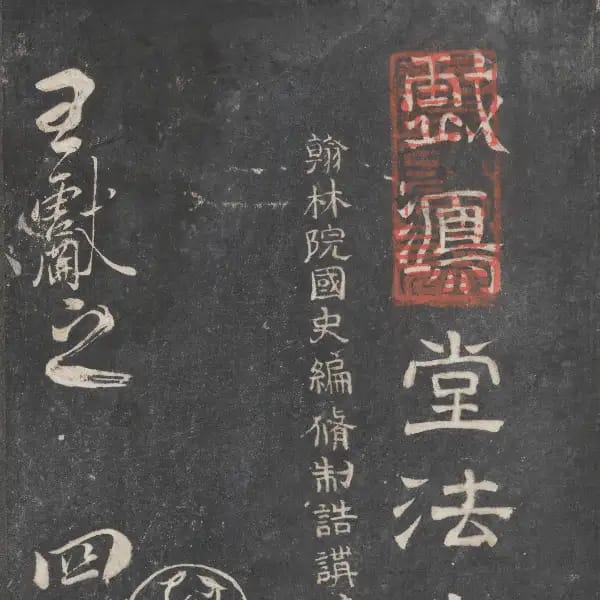 戲鴻堂法
翰林院國史編脩制誥講
王獻之
四